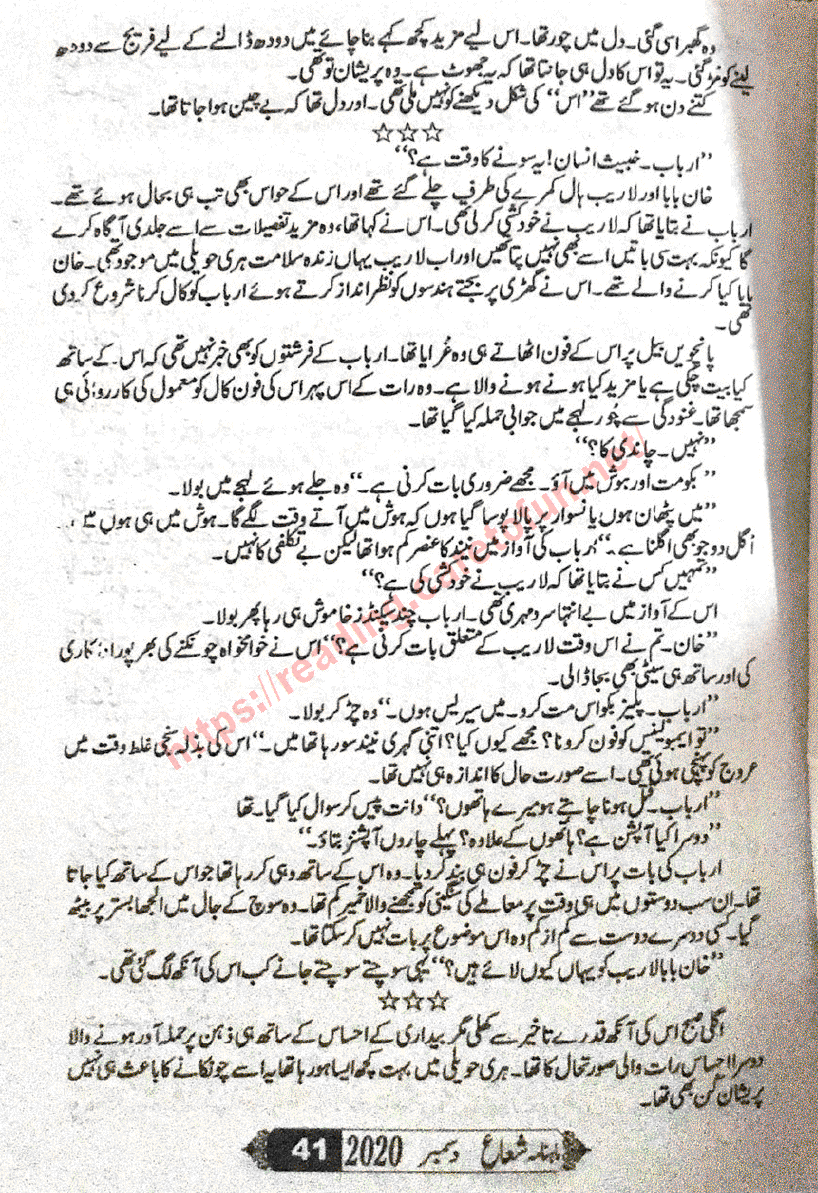 وہ گھبرا سی گئی۔ دل میں چور تھا۔ اس لیے مزید کچھ کہے بنا چائے میں دودھ ڈالنے کے لیے فریج سے دودھ
لینے کو مڑ گئی۔ یہ تو اس کا دل ہی جانتا تھا کہ یہ جھوٹ ہے۔ وہ پریشان تو تھی۔
کتنے دن ہو گئے تھے ”اس“ کی شکل دیکھنے کو نہیں ملی تھی۔ اور دل تھا کہ بے چین ہوا جاتا تھا۔
☆☆☆
”ارباب۔ خبیث انسان! یہ سونے کا وقت ہے؟“
خان بابا اور لاریب ہال کمرے کی طرف چلے گئے تھے اور اس کے حواس بھی تب ہی بحال ہوئے تھے۔
ارباب نے بتایا تھا کہ لاریب نے خودکشی کر لی تھی۔ اس نے کہا تھا، وہ مزید تفصیلات سے اسے جلدی آگاہ کرے
گا کیونکہ بہت سی باتیں اسے بھی نہیں پتا تھیں اور اب لاریب یہاں زندہ سلامت ہری حویلی میں موجود تھی۔ خان
بابا کیا کرنے والے تھے۔ اس نے گھڑی پر بجتے ہندسوں کو نظر انداز کرتے ہوئے ارباب کو کال کرنا شروع کر دی
تھی۔
پانچویں بیل پر اس کے فون اٹھاتے ہی وہ غرایا تھا۔ ارباب کے فرشتوں کو بھی خبر نہیں تھی کہ اس کے ساتھ
کیا بیت چکی ہے یا مزید کیا ہونے ہونے والا ہے۔ وہ رات کے اس پہر اس کی فون کال کو معمول کی کارروائی ہی
سمجھا تھا۔ غنودگی سے چُور لہجے میں جوابی حملہ کیا گیا تھا۔
”نہیں۔ چاندی کا؟“
”بکو مت اور ہوش میں آؤ۔ مجھے ضروری بات کرنی ہے۔“ وہ جلے ہوئے لہجے میں بولا۔
”میں پٹھان ہوں یا نسوار پر پالا پوسا گیا ہوں کہ ہوش میں آتے وقت لگے گا۔ ہوش میں ہی ہوں میں۔
اُگل دو جو بھی اگلنا ہے۔“ ارباب کی آواز میں نیند کا عنصر کم ہوا تھا لیکن بے تکلفی کا نہیں۔
”تمہیں کس نے بتایا تھا کہ لاریب نے خودکشی کی ہے؟“
اس کے آواز میں بے انتہا سرد مہری تھی۔ ارباب چند سیکنڈز خاموش ہی رہا پھر بولا۔
”خان۔ تم نے اس وقت لاریب کے متعلق بات کرنی ہے؟“ اس نے خوامخواہ چونکنے کی بھرپور اداکاری
کی اور ساتھ ہی سیٹی بھی بجا ڈالی۔
”ارباب۔ پلیز بکواس مت کرو۔ میں سیریس ہوں۔“ وہ چڑ کر بولا۔
”تو ایمبولینس کو فون کرو نا؟ مجھے کیوں کیا؟ اتنی گہری نیند سو رہا تھا میں۔“ اس کی بذلہ سنجی غلط وقت میں
عروج کو پہنچی ہوئی تھی۔ اسے صورت حال کا اندازہ ہی نہیں تھا۔
”ارباب۔ قتل ہونا چاہتے ہو میرے ہاتھوں؟“ دانت پیس کر سوال کیا گیا۔ تھا
”دوسرا کیا آپشن ہے؟ ہاتھوں کے علاوہ؟ پہلے چاروں آپشنز بتاؤ۔“
ارباب کی بات پر اس نے چڑ کر فون ہی بند کر دیا۔ وہ اس کے ساتھ وہی کر رہا تھا جو اس کے ساتھ کیا جاتا
تھا۔ ان سب دوستوں میں ہی وقت پر معاملے کی سنگینی کو سمجھنے والا خمیر کم تھا۔ وہ سوچ کے جال میں الجھا بستر پر بیٹھ
گیا۔ کسی دوسرے دوست سے کم از کم وہ اس موضوع پر بات نہیں کر سکتا تھا۔
”خان بابا لاریب کو یہاں کیوں لائے ہیں؟“ یہی سوچتے سوچتے جانے کب اس کی آنکھ لگ گئی تھی۔
☆☆☆
اگلی صبح اس کی آنکھ قدرے تاخیر سے کھلی مگر بیداری کے احساس کے ساتھ ہی ذہن پر حملہ آور ہونے والا
دوسرا احساس رات والی صورتحال کا تھا۔ ہری حویلی میں بہت کچھ ایسا ہو رہا تھا یہ اسے چونکانے کا باعث ہی نہیں
پریشان کن بھی تھا۔
ماہنامہ شعاع دسمبر 2020 41
https://reading.caretofun.net/